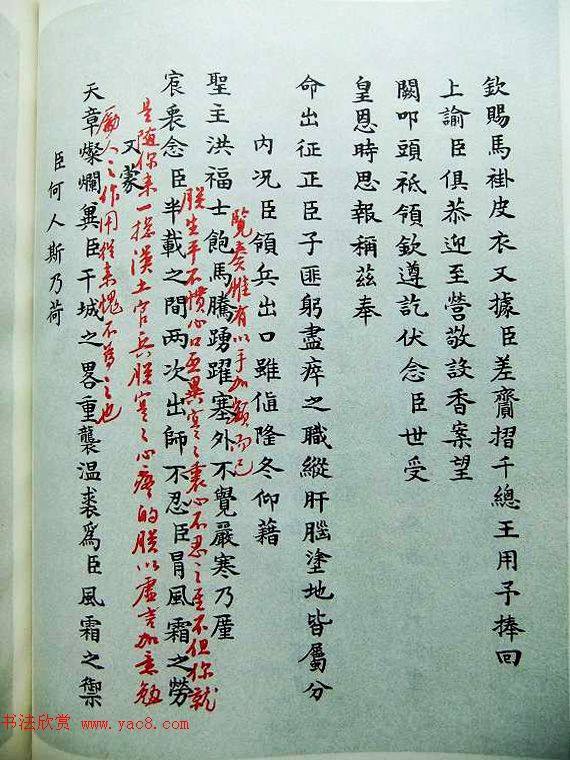 欽賜馬褂皮衣又據臣差齎摺千總王用予捧回
上諭臣俱恭迎至營敬設香案望
闕叩頭祗領欽遵訖伏念臣世受
皇恩時思報稱茲奉
命出征正臣子匪躬盡瘁之職縱肝腦塗地皆屬分
內况臣領兵出口雖值隆冬仰藉
覽奏惟有以手加額而已
聖主洪福士飽馬騰踴躍塞外不覺嚴寒乃厪
朕生平不慣心口互異寔之衷心不忍之至不但你就
宸衷念臣半載之間两次出師不忍臣冒風霜之勞
是隨你來一摠漢土官兵朕寔之心疼的朕以虛言加意勉
又蒙
勵人之作用從來愧不為之也
天章燦爛冀臣干城之畧重襲温裘爲臣風霜之禦
臣何人斯乃荷
书法欣赏 www.yac8.com